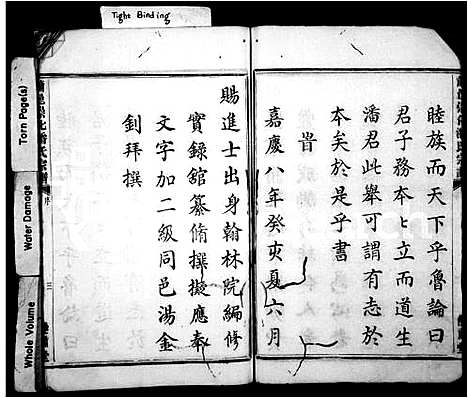 Tight Binding
Torn Page(s)
Water Damage
Whole Volume
睦族而天下乎魯論曰
君子務本〻立而道生
潘君此舉可謂有志於
本矣於是乎書
旹
嘉慶八年癸亥夏六月
賜進士出身翰林院編修
實錄館纂脩撰擬應奉
文字加二級同邑湯金
釗拜撰
氏宗譜
序
三